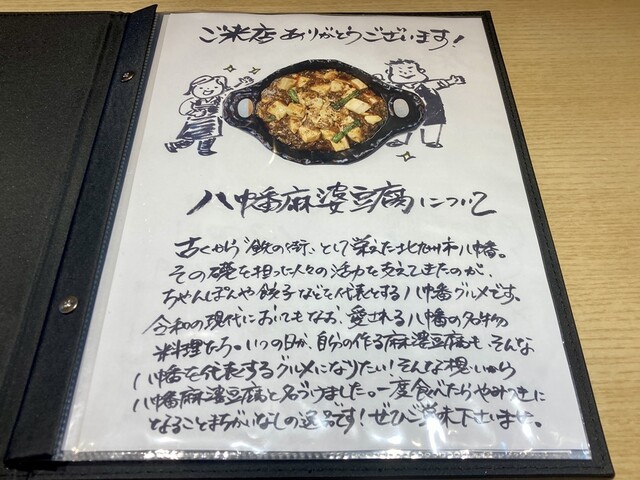 ご来店ありがとうございます!
八幡麻婆豆腐について
古くから「鉄の街」として栄えた北九州市八幡。
その礎を担った人々の活力を支えてきたのが、
ちゃんぽんや餃子などを代表とする八幡グルメです。
令和の現代においてもなお、愛される八幡の名物
料理たち。いつの日か、自分の作る麻婆豆腐も、そんな
八幡を代表するグルメになりたい!そんな想いから
八幡麻婆豆腐と名づけました。一度食べたらやみつきに
なることまちがいなしの逸品です!ぜひご賞味下さいませ。